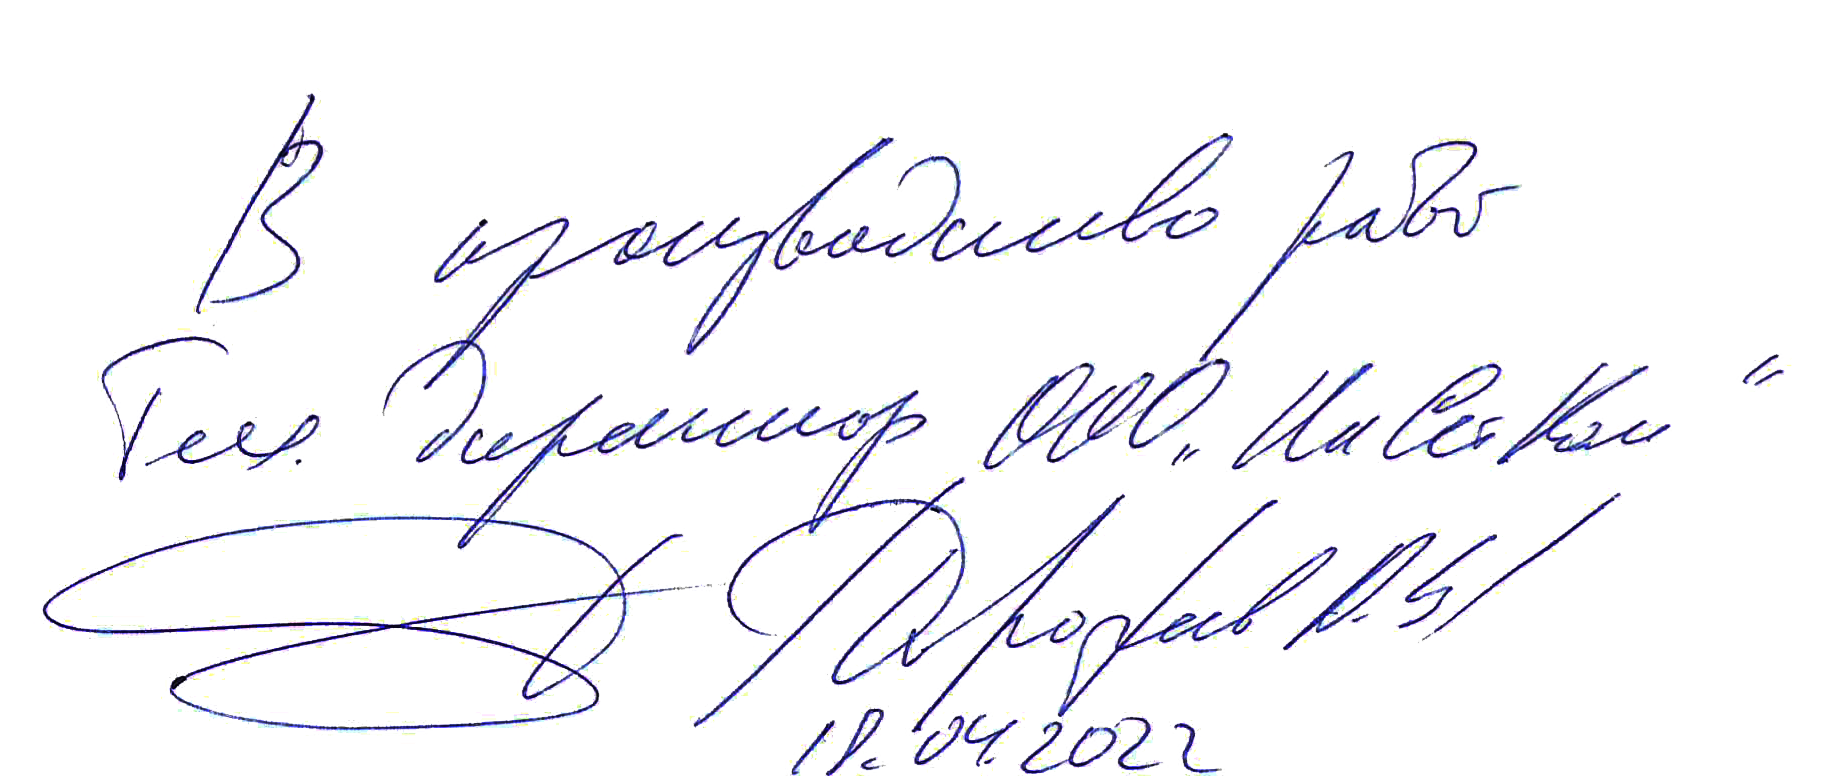 В производство работ
Тех. Директор ООО „ИнСетКом"
18.04.2022